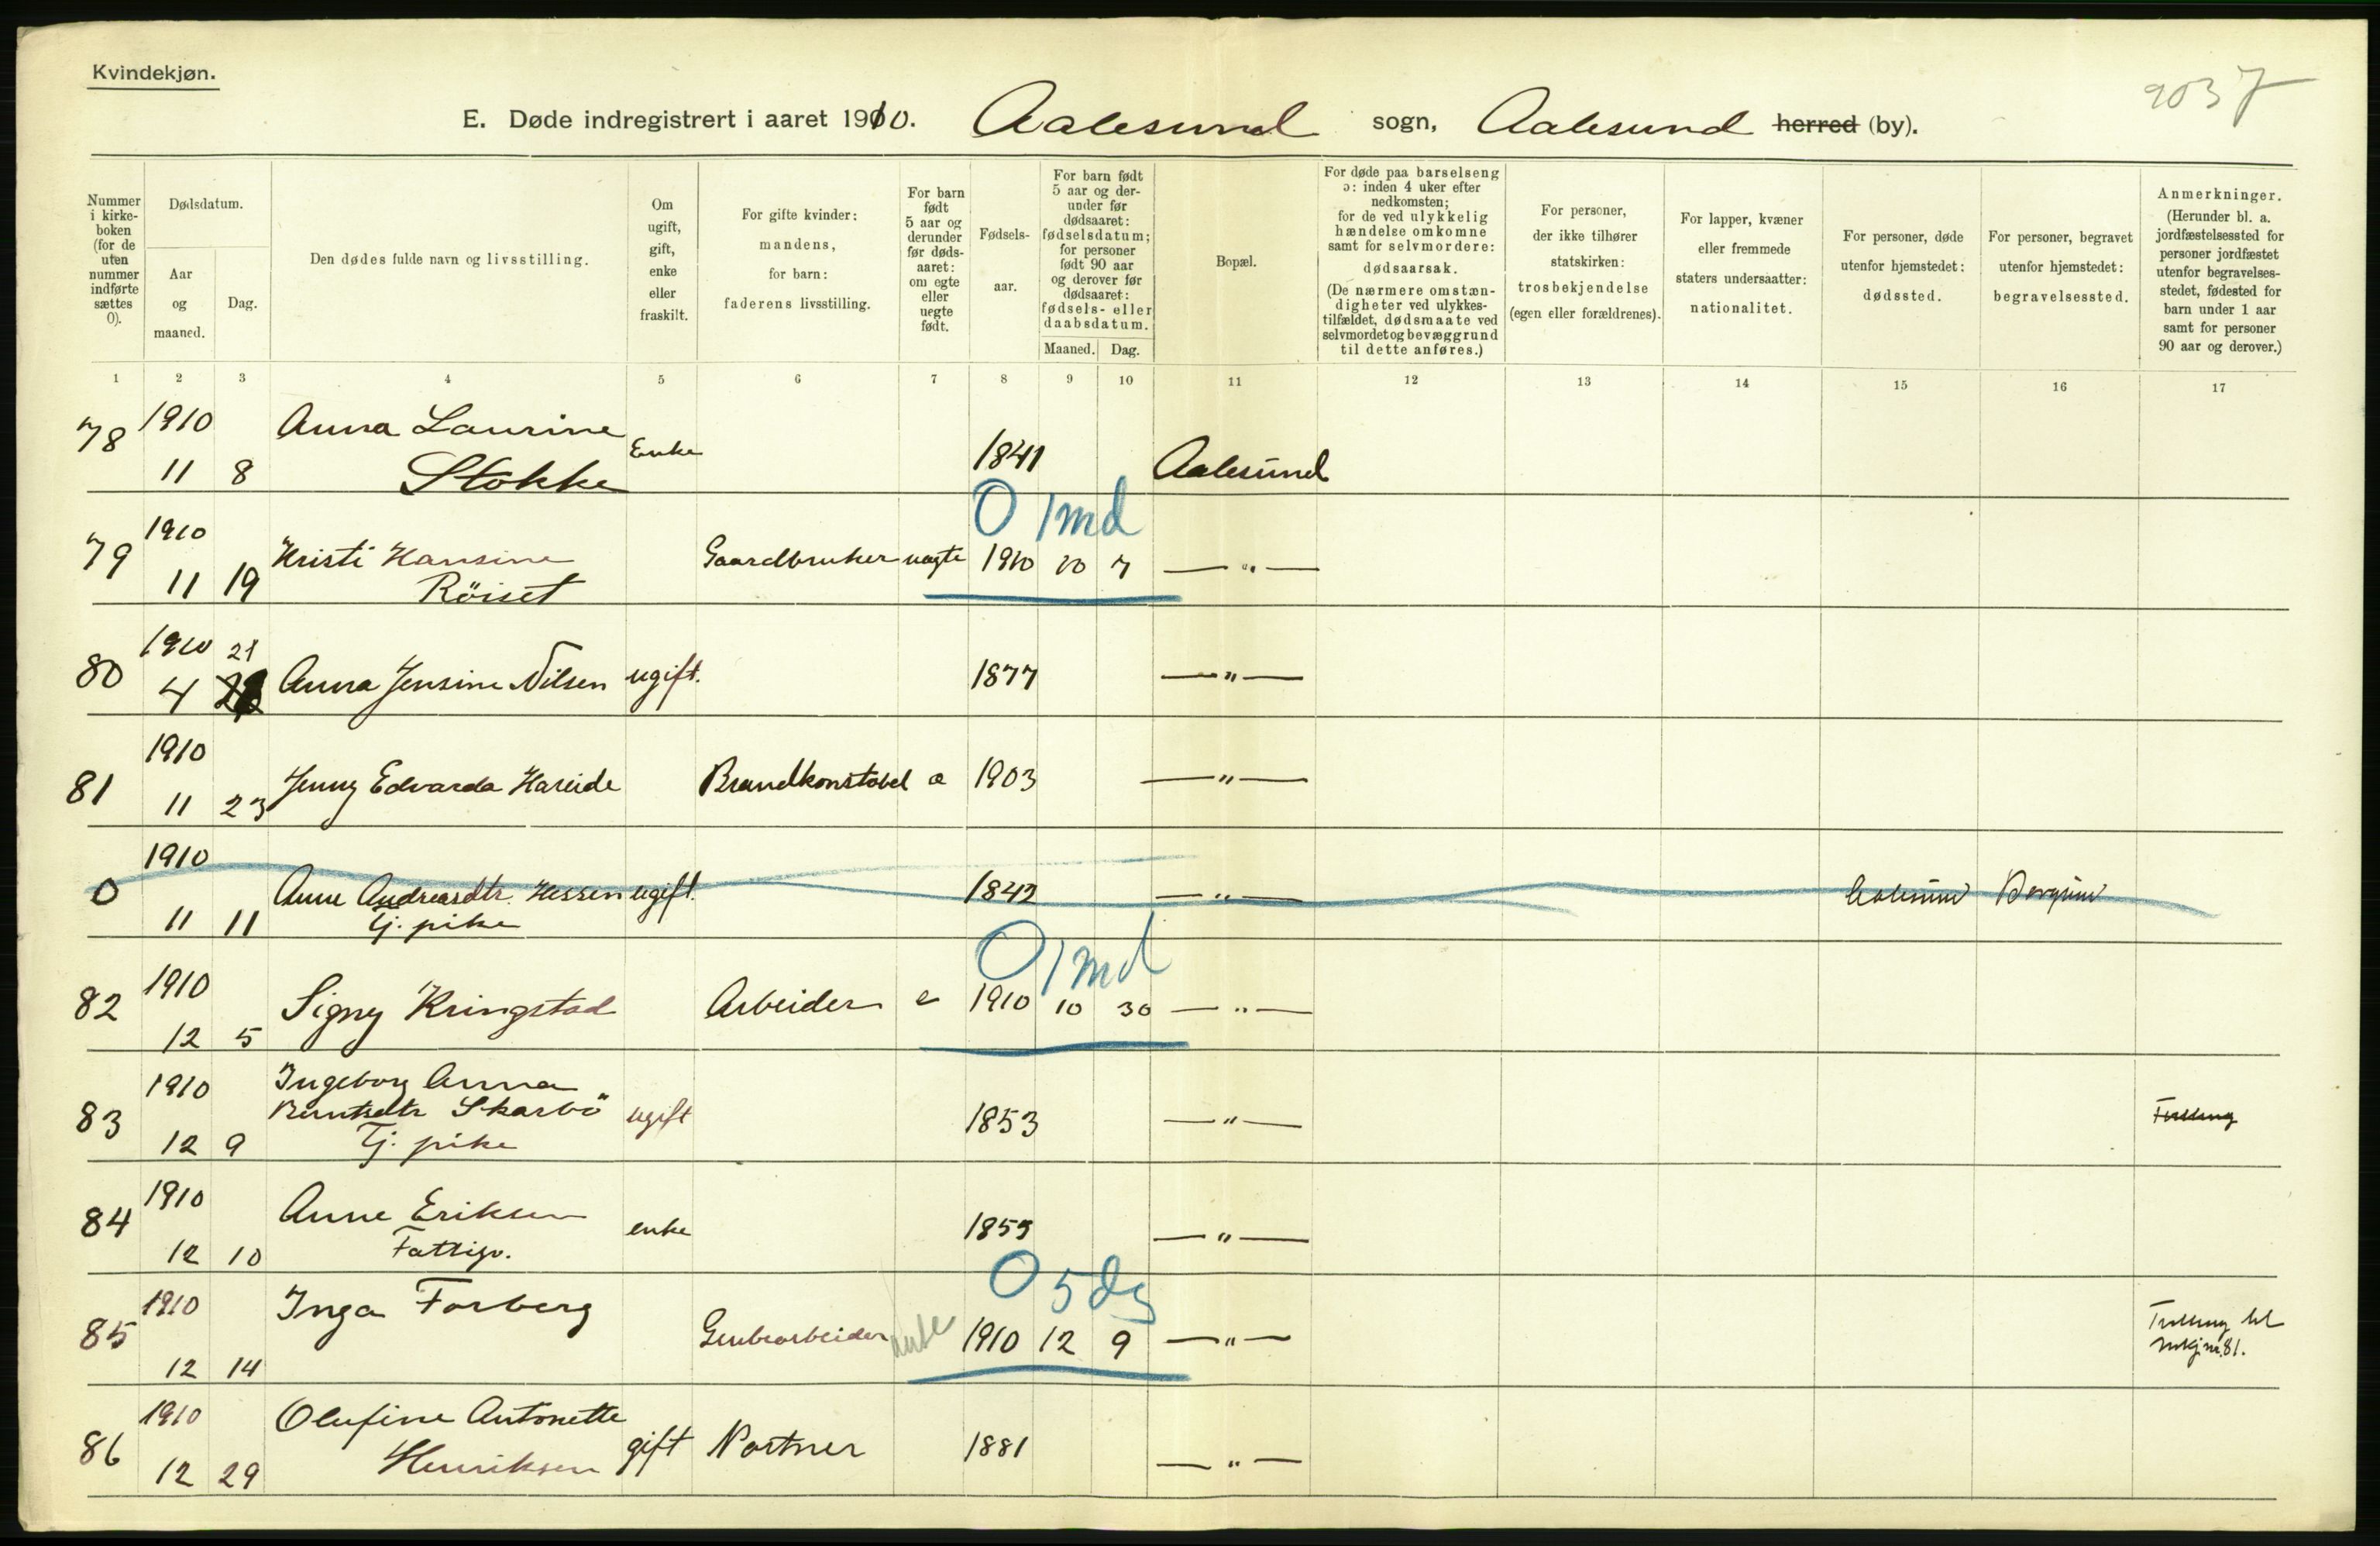 Kvindekjøn.
9037
E. Døde indregistrert i aaret 1910. Aalesund sogn, Aalesund herred (by).
Nummer i kirke-boken (for de uten nummer indførte sættes 0).
Dødsdatum.
Aar og maaned.
Dag.
Den dødes fulde navn og livsstilling.
Om ugift, gift, enke eller fraskilt.
For gifte kvinder: mandens, for barn: faderens livsstilling.
For barn født 5 aar og derunder før døds-aaret: om egte eller uegte født.
Fødsels-aar.
For barn født 5 aar og der-under før dødsaaret: fødselsdatum; for personer født 90 aar og derover før dødsaaret: fødsels- eller daabsdatum.
Maaned. Dag.
Bopæl.
For døde paa barselseng ɔ: inden 4 uker efter nedkomsten; for de ved ulykkelig hændelse omkomne samt for selvmordere: dødsaarsak. (De nærmere omstæn-digheter ved ulykkes-tilfældet, dødsmaate ved selvmordet og bevæggrund til dette anføres.)
For personer, der ikke tilhører statskirken: trosbekjendelse (egen eller forældrenes).
For lapper, kvæner eller fremmede staters undersaatter: nationalitet.
For personer, døde utenfor hjemstedet: dødssted.
For personer, begravet utenfor hjemstedet: begravelsessted.
Anmerkninger. (Herunder bl. a. jordfæstelsessted for personer jordfæstet utenfor begravelses-stedet, fødested for barn under 1 aar samt for personer 90 aar og derover.)
1 2 3 4 5 6 7 8 9 10 11 12 13 14 15 16 17
78 1910 11 8 Anna Laurine Stokke Enke 1841 Aalesund
0 1 md
79 1910 11 19 Kristi Hansine Röiset Gaardbruker uegte 1910 10 7 — " —
80 1910 21 4 Anna Jensine Nilsen ugift. 1877 — " —
81 1910 11 23 Jenny Edvarda Hareide Brandkonstabel e 1903 — " —
0 1910 11 11 Anne Andreasdtr. Hessen Tj. pike ugift. 1842 — " — Aalesund Borgund
0 1 md
82 1910 12 5 Signy Kringstad Arbeider e 1910 10 30 — " —
83 1910 12 9 Ingeborg Anna Berntsdtr Skarbö Tj. pike ugift 1853 — " —
84 1910 12 10 Anne Eriksen Fattigv. enke 1859 — " —
0 5 dg
85 1910 12 14 Inga Forberg Grubearbeider 1910 12 9 — " — Tvilling til mkj. nr. 81.
86 1910 12 29 Olufine Antonette Henriksen gift Portner 1881 — " —